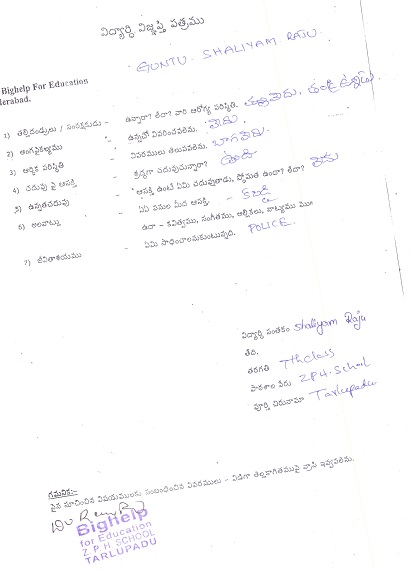 విద్యార్థి విజ్ఞప్తి పత్రము
GUNTU SHALIYAM RAJU.
Bighelp For Education
derabad.
1) తల్లిదండ్రులు / సంరక్షకుడు - ఉన్నారా? లేదా? వారి ఆరోగ్య పరిస్థితి.
2) అంగవైకల్యము - ఉన్నచో వివరించవలెను. లేదు.
3) ఆర్థిక పరిస్థితి - వివరములు తెలుపవలెను. బాగలేదు.
4) చదువు పై ఆసక్తి - శ్రద్ధగా చదువుచున్నారా? ఉంది
5) ఉన్నతచదువు - ఆసక్తి ఉంటే ఏమి చదువుతాడు, స్తోమత ఉందా? లేదా? లేదు
6) అలవాట్లు - ఏఏ పనుల మీద ఆసక్తి. -
ఉదా - కవిత్వము, సంగీతము, అల్లికలు, నాట్యము మొ॥
7) జీవితాశయము - ఏమి సాధించాలనుకుంటున్నది. POLICE.
విద్యార్థి సంతకం Shaliyam Raju
తేది.
తరగతి 7th class
పాఠశాల పేరు Z.P.H. School
పూర్తి చిరునామా Tarlupadu
గమనిక:-
పైన సూచించిన విషయములకు సంబంధించిన వివరములు - విడిగా తెల్లకాగితముపై వ్రాసి ఇవ్వవలెను.
Bighelp
for Education
Z.P.H SCHOOL
TARLUPADU